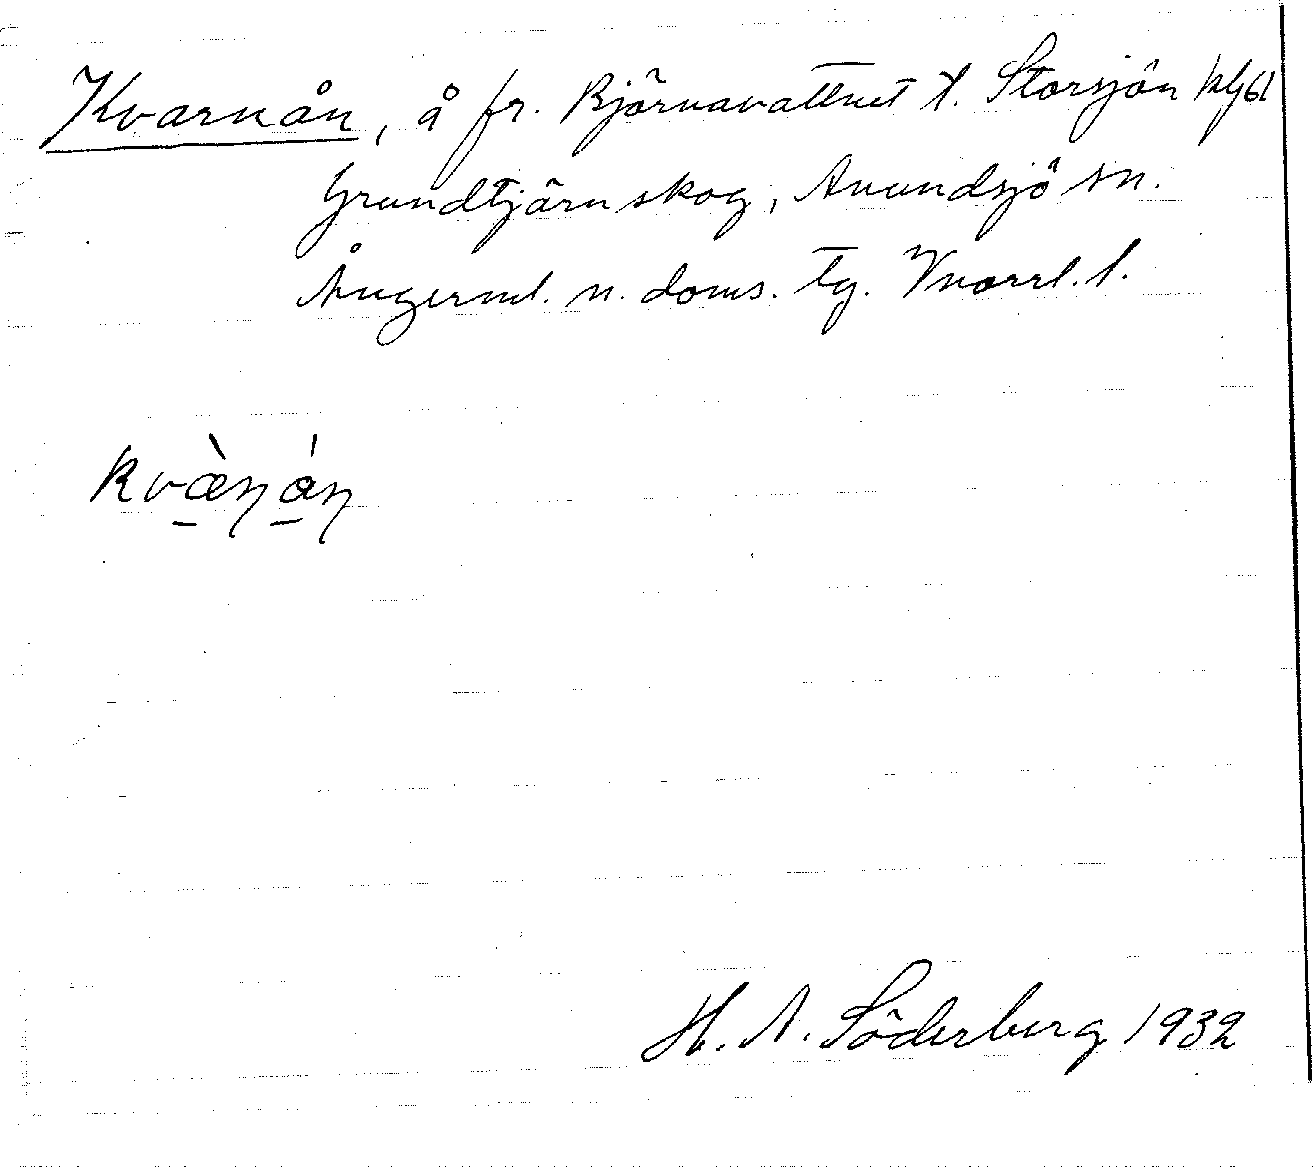 Kvarnån, å fr. Björnavattnet t. Storsjön
Grundtjärn skog, Anundsjö sn.
Ångerml. n. doms. tg. Vnorrl. l.
kvæ̀ṇ án
H. A. Söderberg 1932